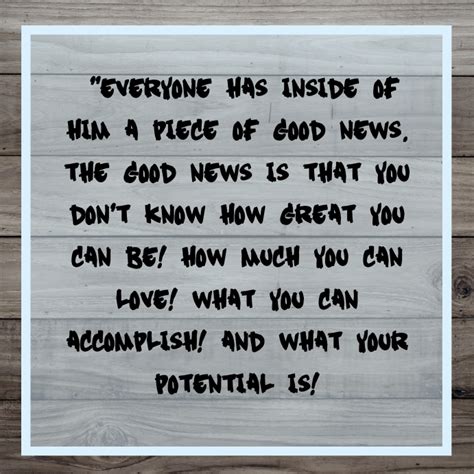 "EVERYONE HAS INSIDE OF
HIM A PIECE OF GOOD NEWS.
THE GOOD NEWS IS THAT YOU
DON'T KNOW HOW GREAT YOU
CAN BE! HOW MUCH YOU CAN
LOVE! WHAT YOU CAN
ACCOMPLISH! AND WHAT YOUR
POTENTIAL IS!